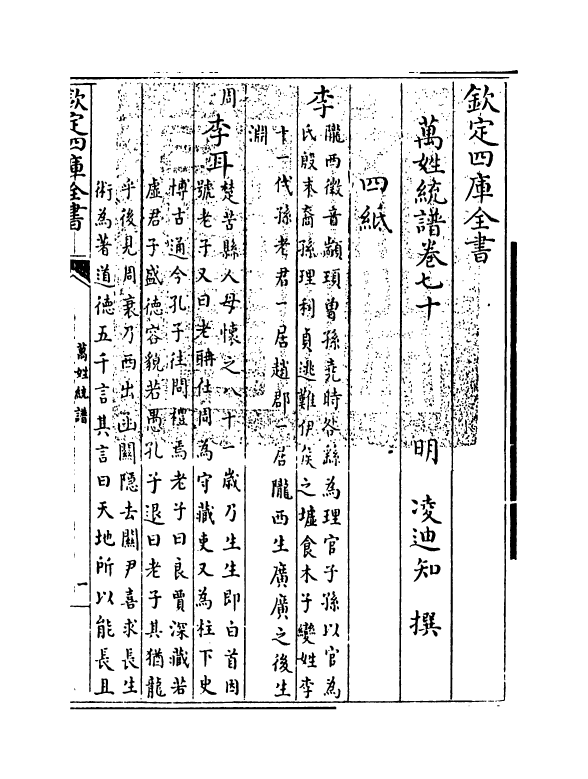 欽定四庫全書
萬姓統譜卷七十
明 凌迪知 撰
四紙
李
隴西徵音顓頊曾孫堯時咎繇為理官子孫以官為
氏殷末裔孫理利貞逃難伊侯之墟食木子變姓李
十一代孫老君一居趙郡一居隴西生廣廣之後生
淵
周
李耳
楚苦縣人母懷之八十一歲乃生生即白首因
號老子又曰老聃仕周為守藏吏又為柱下史
博古通今孔子往問禮焉老子曰良賈深藏若
虛君子盛德容貌若愚孔子退曰老子其猶龍
乎後見周衰乃西出函關隱去關尹喜求長生
術為著道德五千言其言曰天地所以能長且
欽定四庫全書
萬姓統譜
一